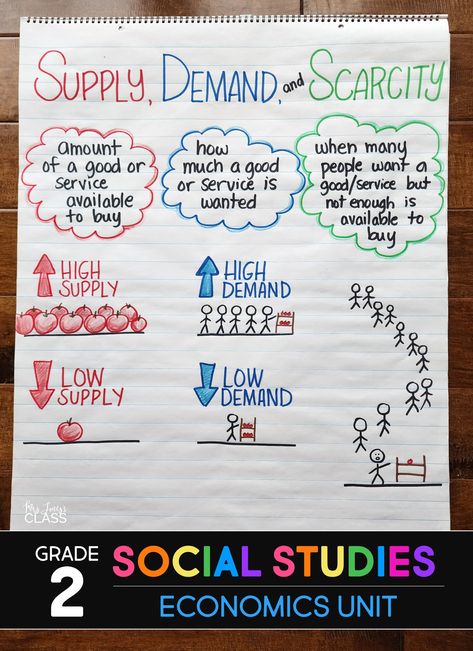 SUPPLY, DEMAND, and SCARCITY
amount
of a good or
service
available
to buy
how
much a good
or service is
wanted
when many
people want a
good/service but
not enough is
available to
buy
HIGH
SUPPLY
HIGH
DEMAND
LOW
SUPPLY
LOW
DEMAND
Mrs Jones's
CLASS
GRADE
2
SOCIAL STUDIES
ECONOMICS UNIT